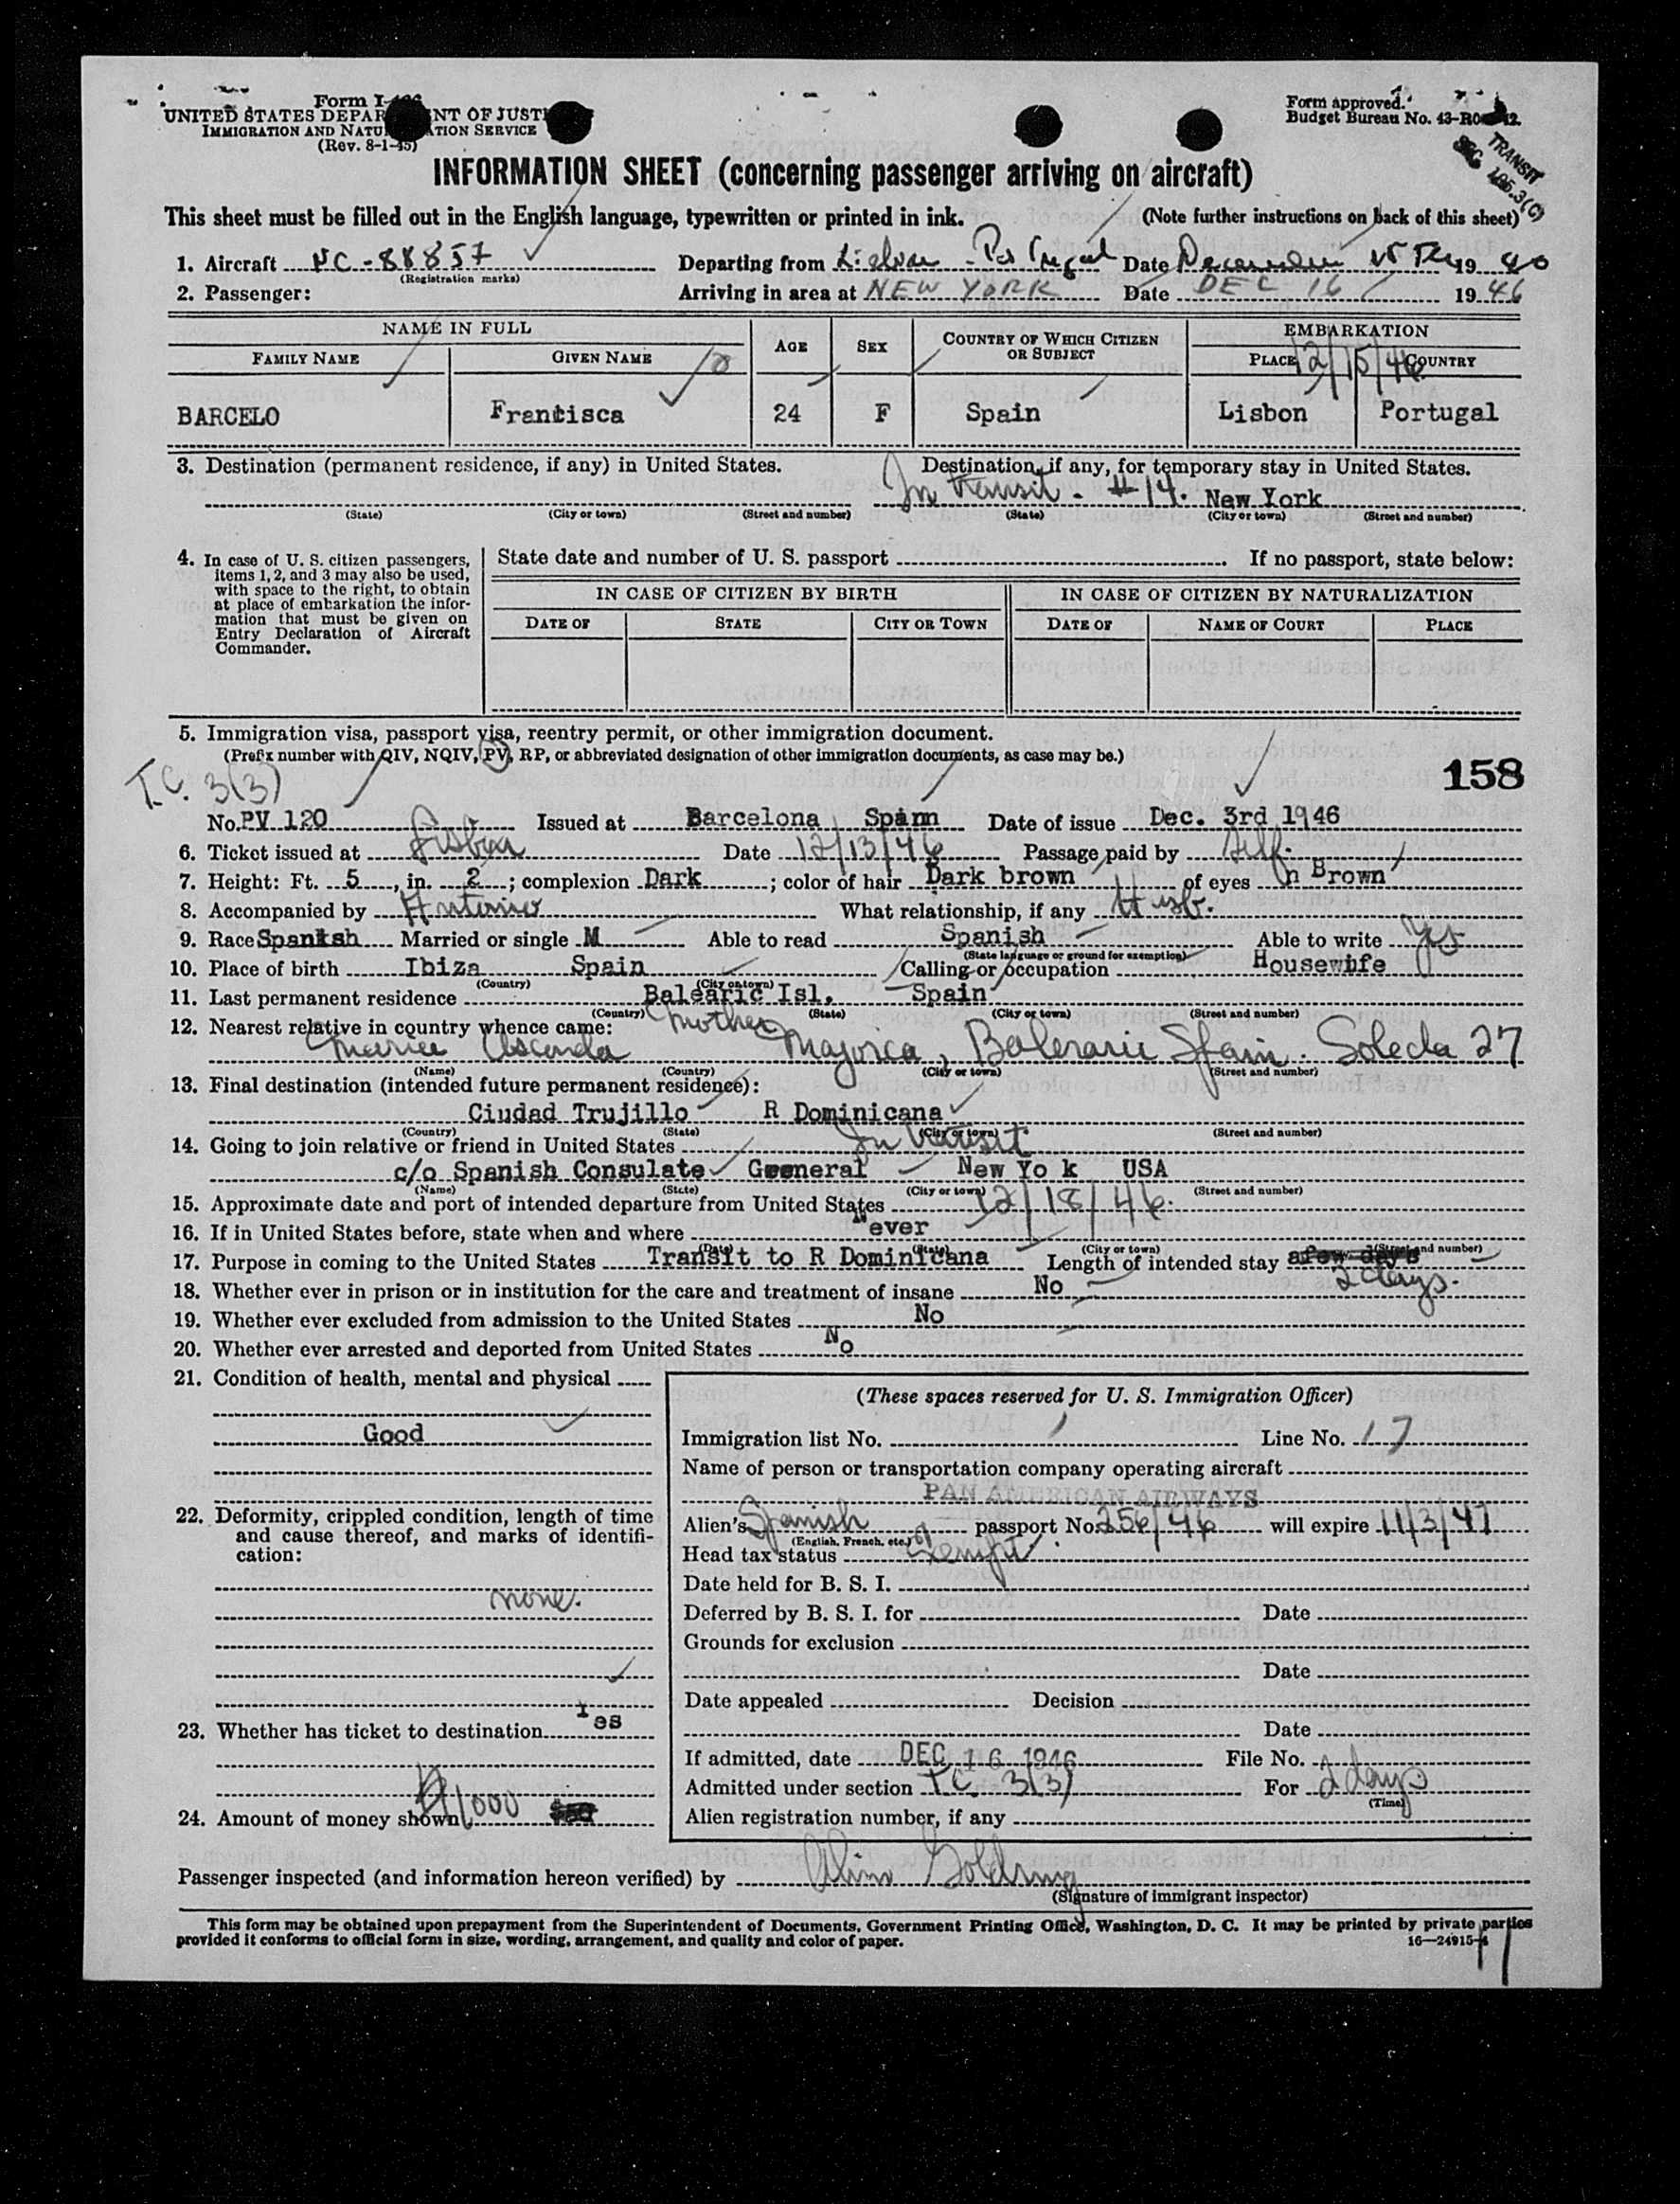 Form I-
UNITED STATES DEPAR NT OF JUSTI
IMMIGRATION AND NATU ATION SERVICE
(Rev. 8-1-45)
Form approved.
Budget Bureau No. 43-R0 12.
TRANSIT
SEC 105.3(C)
INFORMATION SHEET (concerning passenger arriving on aircraft)
This sheet must be filled out in the English language, typewritten or printed in ink. (Note further instructions on back of this sheet)
1. Aircraft NC-88857 Departing from Date 19
(Registration marks)
2. Passenger: Arriving in area at NEW YORK Date DEC 16 1946
NAME IN FULL AGE SEX COUNTRY OF WHICH CITIZEN OR SUBJECT EMBARKATION
FAMILY NAME GIVEN NAME PLACE 12/15/46 COUNTRY
BARCELO Francisca 24 F Spain Lisbon Portugal
3. Destination (permanent residence, if any) in United States. Destination, if any, for temporary stay in United States.
In transit - #14. New York
(State) (City or town) (Street and number) (State) (City or town) (Street and number)
4. In case of U. S. citizen passengers,
items 1, 2, and 3 may also be used,
with space to the right, to obtain
at place of embarkation the infor-
mation that must be given on
Entry Declaration of Aircraft
Commander.
State date and number of U. S. passport . If no passport, state below:
IN CASE OF CITIZEN BY BIRTH IN CASE OF CITIZEN BY NATURALIZATION
DATE OF STATE CITY OR TOWN DATE OF NAME OF COURT PLACE
5. Immigration visa, passport visa, reentry permit, or other immigration document.
(Prefix number with QIV, NQIV, PV, RP, or abbreviated designation of other immigration documents, as case may be.)
T.C. 3(3)
158
No. PV 120 Issued at Barcelona Spain Date of issue Dec. 3rd 1946
6. Ticket issued at Lisbon Date 12/13/46 Passage paid by Self.
7. Height: Ft. 5, in. 2; complexion Dark; color of hair Dark brown of eyes Brown
8. Accompanied by Antonio What relationship, if any Husb.
9. Race Spanish Married or single M Able to read Spanish Able to write Yes
(State language or ground for exemption)
10. Place of birth Ibiza Spain Calling or occupation Housewife
(Country) (City or town)
11. Last permanent residence Balearic Isl. Spain
(Country) (State) (City or town) (Street and number)
12. Nearest relative in country whence came: mother
Majorca, Spain. 27
(Name) (Country) (City or town) (Street and number)
13. Final destination (intended future permanent residence):
Ciudad Trujillo R Dominicana
(Country) (State) (City or town) (Street and number)
14. Going to join relative or friend in United States In transit
c/o Spanish Consulate General New Yo k USA
(Name) (State) (City or town) (Street and number)
15. Approximate date and port of intended departure from United States 12/18/46.
16. If in United States before, state when and where Never
(Date) (State) (City or town) (Street and number)
17. Purpose in coming to the United States Transit to R Dominicana Length of intended stay afew days
2 days.
18. Whether ever in prison or in institution for the care and treatment of insane No
19. Whether ever excluded from admission to the United States No
20. Whether ever arrested and deported from United States No
21. Condition of health, mental and physical
Good
22. Deformity, crippled condition, length of time
and cause thereof, and marks of identifi-
cation:
none.
23. Whether has ticket to destination Yes
24. Amount of money shown $1,000 $50
(These spaces reserved for U. S. Immigration Officer)
Immigration list No. Line No. 17
Name of person or transportation company operating aircraft
PAN AMERICAN AIRWAYS
Alien's Spanish passport No. 256/46 will expire 11/3/47
(English, French, etc.)
Head tax status exempt.
Date held for B. S. I.
Deferred by B. S. I. for Date
Grounds for exclusion
Date
Date appealed Decision
Date
If admitted, date DEC 16 1946 File No.
Admitted under section T.C. 3(3) For 2 days
(Time)
Alien registration number, if any
Passenger inspected (and information hereon verified) by
(Signature of immigrant inspector)
This form may be obtained upon prepayment from the Superintendent of Documents, Government Printing Office, Washington, D. C. It may be printed by private parties
provided it conforms to official form in size, wording, arrangement, and quality and color of paper. 16—24915-1
17